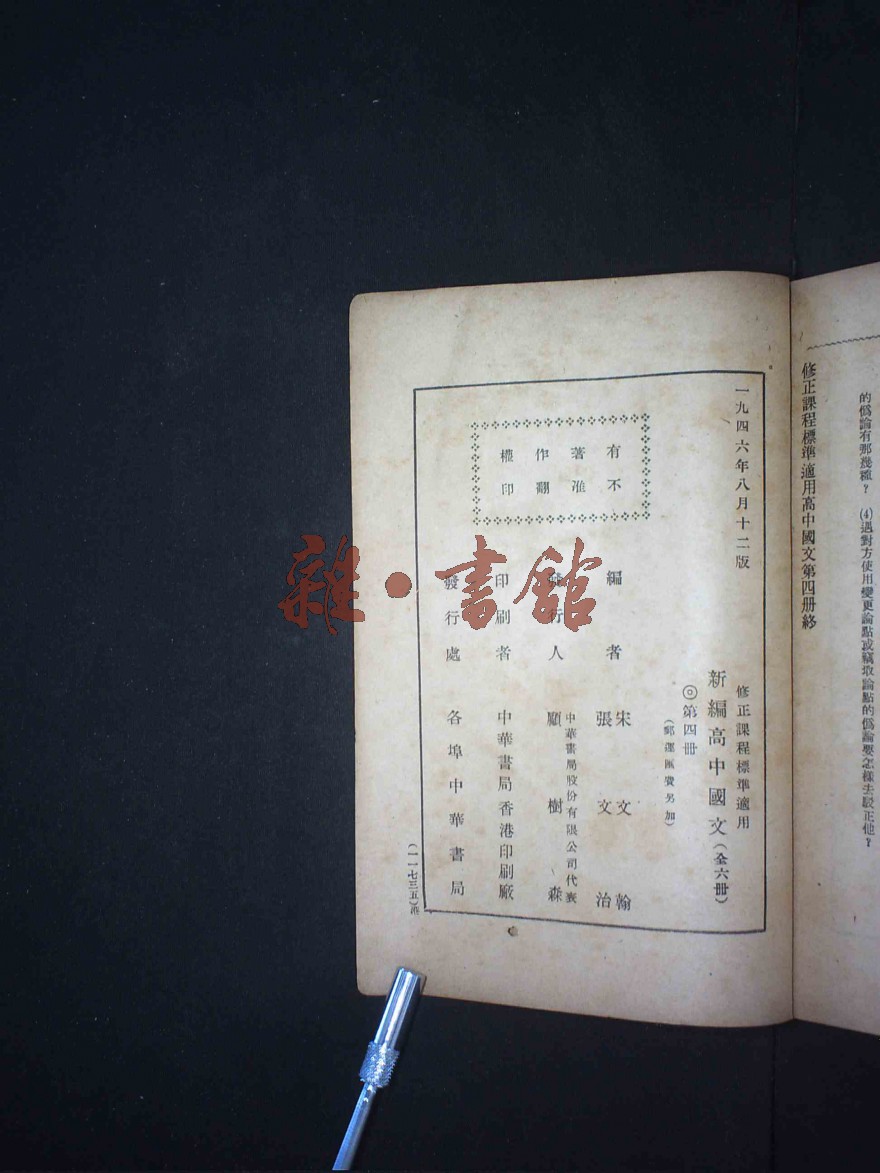 的僞論有那幾種？　(4)遇對方使用變更論點或竊取論點的僞論要怎樣去駁正他？
修正課程標準適用高中國文第四册終
一九四六年八月十二版
修正課程標準適用
新編高中國文(全六册)
◎第四册
(郵運匯費另加)
有不
著准
作翻
權印
編者　宋文翰
張文治
發行人　中華書局股份有限公司代表
顧樹森
印刷者　中華書局香港印刷厰
發行處　各埠中華書局
(一一七三五)港
雜·書館